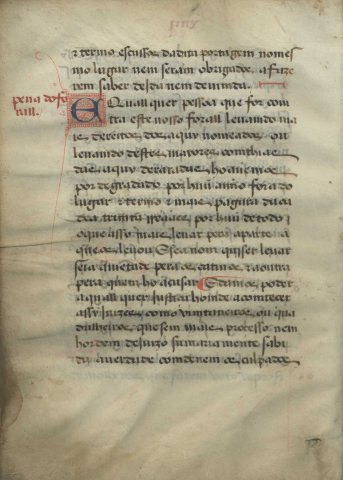 & termo escusos da dita portagem nom es
mo lugar nem seram obrigados a faze
rem saber della nem devinda.
pena do fo
rall.
E Qualquer pessoa que for com
tra este nosso forall levando ma
is dereitos dos aquy nomeados ou
levando destes mayores comthias
das aquy decraradas ho avemos
por degradado por huũ anno fora do
lugar & termo & mais pagara da ca
dea trinta rreaes por huũ de todo o
que assy mais levar pera a parte a
que os levou E se a nom quiser levar
seja ametade pera os cativos & a outra
pera quem ho acusar E damos poder
a quallquer justiça honde acontecer
assy juizes como vimtaneiros ou qua
drilheiros que sem mais processo nem
hordem de juizo sumariamente sabi
da a verdade comdenem os culpados